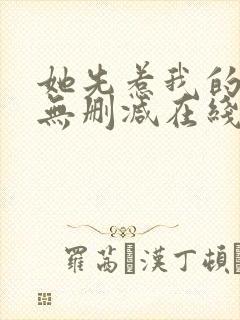 她先惹我的
無删减在綫
羅茜 漢丁頓